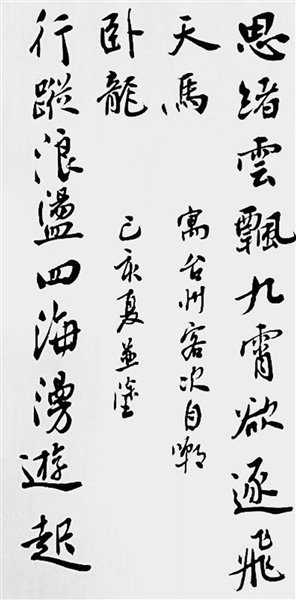 思緒雲飄九霄欲逐飛
天馬
寓台州客次自嘲
行蹤浪盪四海湧遊起
卧龍
己亥夏並塗